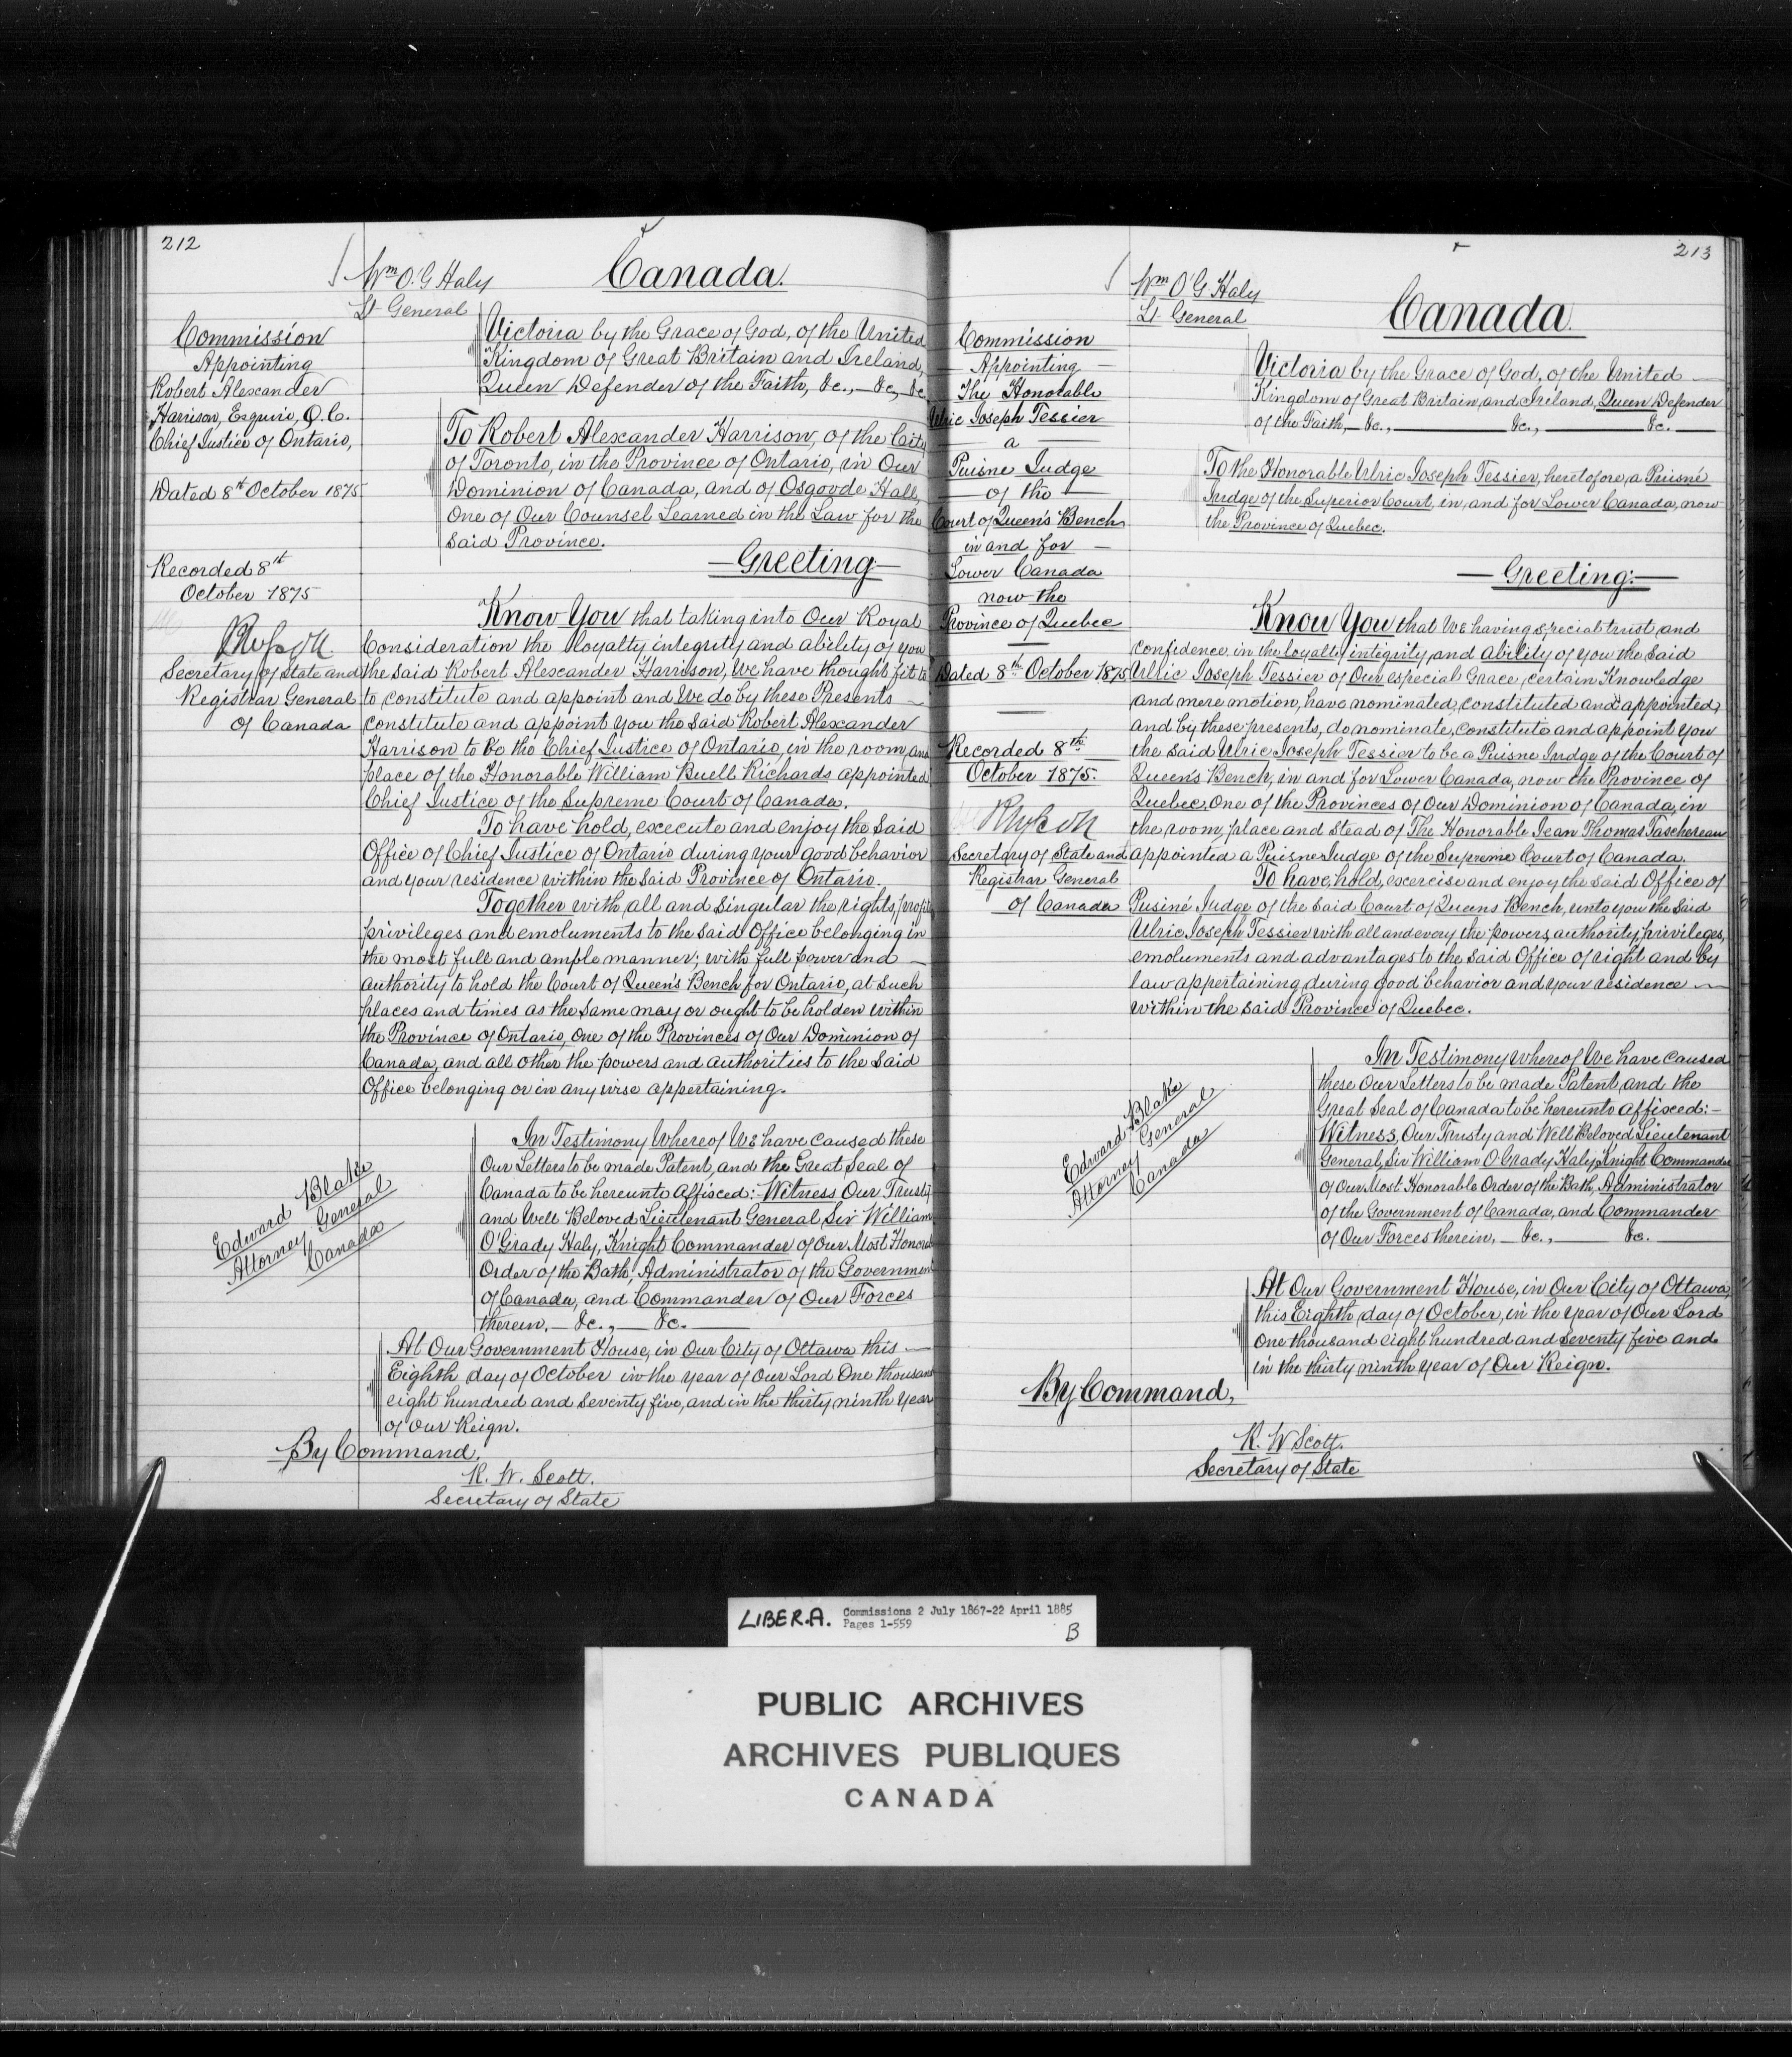 212
Wm O'G Haly
Lt General
Canada.
Commission
Appointing
Robert Alexander
Harrison, Esquire, Q.C.
Chief Justice of Ontario,
Dated 8th October 1875
Recorded 8th
October 1875
Secretary of State and
Registrar General
of Canada
Victoria by the Grace of God, of the United
Kingdom of Great Britain and Ireland,
Queen Defender of the Faith, &c., — &c., &c.
To Robert Alexander Harrison, of the City
of Toronto, in the Province of Ontario, in Our
Dominion of Canada, and of Osgoode Hall,
One of Our Counsel Learned in the Law for the
said Province.
— Greeting —
Know You that taking into Our Royal
Consideration the loyalty integrity and ability of you
the said Robert Alexander Harrison, We have thought fit to
to constitute and appoint and We do by these Presents
constitute and appoint you the said Robert Alexander
Harrison to be the Chief Justice of Ontario, in the room and
place of the Honorable William Buell Richards appointed
Chief Justice of the Supreme Court of Canada.
To have hold, execute and enjoy the said
Office of Chief Justice of Ontario during your good behavior
and your residence within the said Province of Ontario.
Together with all and singular the rights, profits
privileges and emoluments to the said Office belonging in
the most full and ample manner; with full power and
authority to hold the Court of Queen's Bench for Ontario, at such
places and times as the same may or ought to be holden within
the Province of Ontario, one of the Provinces of Our Dominion of
Canada, and all other the powers and authorities to the said
Office belonging or in any wise appertaining.
Edward Blake
Attorney General
Canada
In Testimony Whereof We have caused these
Our Letters to be made Patent, and the Great Seal of
Canada to be hereunto affixed: Witness Our Trusty
and Well Beloved Lieutenant General Sir William
O'Grady Haly, Knight Commander of Our Most Honorable
Order of the Bath, Administrator of the Government
of Canada, and Commander of Our Forces
therein. — &c., — &c. —
At Our Government House, in Our City of Ottawa this —
Eighth day of October in the year of Our Lord One thousand
eight hundred and seventy five, and in the thirty ninth year
of our Reign.
By Command,
R. W. Scott.
Secretary of State
213
Wm O'G Haly
Lt General
Canada.
Commission
Appointing
The Honorable
Ulric Joseph Tessier
a
Puisne Judge
of the
Court of Queen's Bench
in and for
Lower Canada
now the
Province of Quebec
Dated 8th October 1875
Recorded 8th
October 1875.
Secretary of State and
Registrar General
of Canada
Victoria by the Grace of God, of the United
Kingdom of Great Britain and Ireland, Queen Defender
of the Faith, — &c., — &c., — &c. —
To the Honorable Ulric Joseph Tessier, heretofore, a Puisné
Judge of the Superior Court, in and for Lower Canada, now
the Province of Quebec.
— Greeting: —
Know You that We having special trust and
confidence in the loyalty, integrity, and ability of you the said
Ulric Joseph Tessier of Our especial Grace, certain Knowledge
and mere motion, have nominated, constituted and appointed,
and by these presents, do nominate, constitute and appoint you
the said Ulric Joseph Tessier to be a Puisne Judge of the Court of
Queen's Bench, in and for Lower Canada, now the Province of
Quebec, One of the Provinces of Our Dominion of Canada, in
the room, place and stead of The Honorable Jean Thomas Taschereau
appointed a Puisne Judge of the Supreme Court of Canada.
To have, hold, excercise and enjoy the said Office of
Pusiné Judge of the said Court of Queens Bench, unto you the said
Ulric Joseph Tessier with all and every the powers, authority, privileges,
emoluments and advantages to the said Office of right and by
law appertaining, during good behavior and your residence
within the said Province of Quebec.
Edward Blake
Attorney General
Canada
In Testimony Whereof We have caused
these Our Letters to be made Patent, and the
Great Seal of Canada to be hereunto affixed: —
Witness, Our Trusty and Well Beloved Lieutenant
General, Sir William O'Grady Haly, Knight Commander
of Our Most Honorable Order of the Bath, Administrator
of the Government of Canada, and Commander
of Our Forces therein, — &c., — &c. —
At Our Government House, in Our City of Ottawa,
this Eighth day of October, in the year of Our Lord
One thousand eight hundred and seventy five and
in the thirty ninth year of Our Reign.
By Command,
R. W Scott.
Secretary of State
LIBER.A. Commissions 2 July 1867-22 April 1885
Pages 1-559
B
PUBLIC ARCHIVES
ARCHIVES PUBLIQUES
CANADA